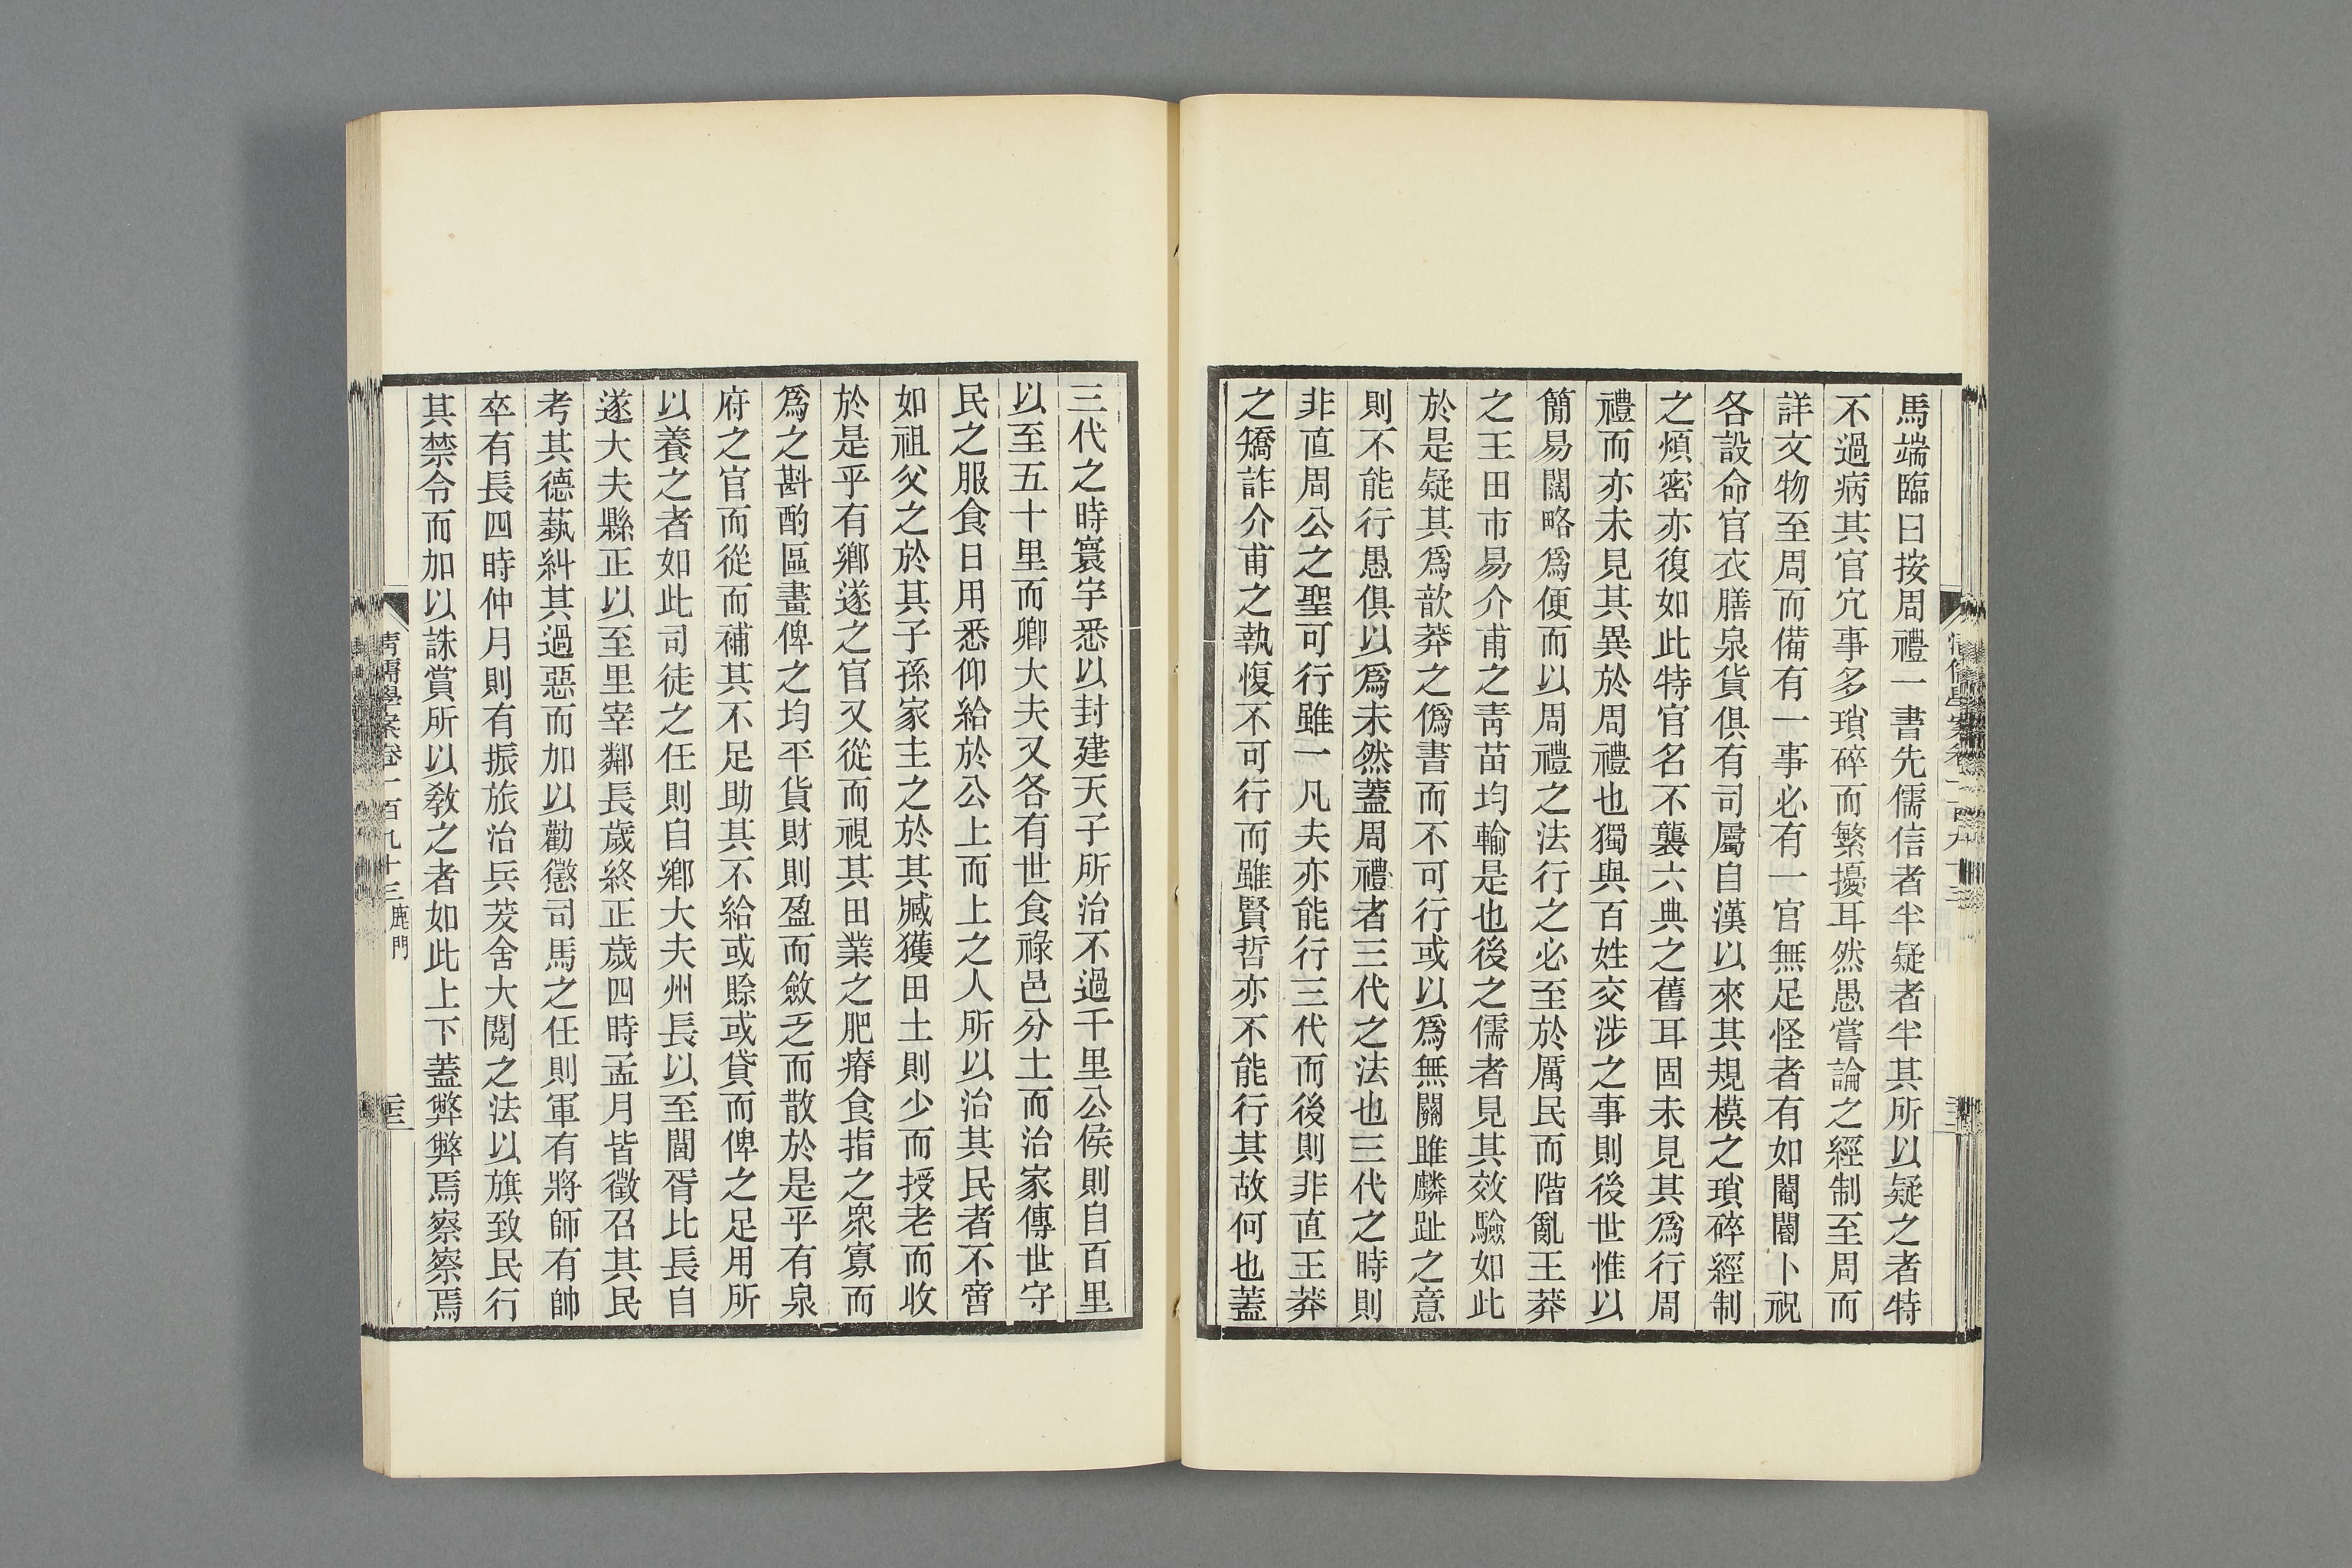 馬端臨曰按周禮一書先儒信者半疑者半其所以疑之者特
不過病其官冗事多瑣碎而繁擾耳然愚嘗論之經制至周而
詳文物至周而備有一事必有一官無足怪者有如閹閽卜祝
各設命官衣膳泉貨俱有司屬自漢以來其規模之瑣碎經制
之煩密亦復如此特官名不襲六典之舊耳固未見其爲行周
禮而亦未見其異於周禮也獨與百姓交涉之事則後世惟以
簡易闊略爲便而以周禮之法行之必至於厲民而階亂王莽
之王田市易介甫之靑苗均輸是也後之儒者見其效驗如此
於是疑其爲歆莽之僞書而不可行或以爲無關雎麟趾之意
則不能行愚俱以爲未然蓋周禮者三代之法也三代之時則
非直周公之聖可行雖一凡夫亦能行三代而後則非直王莽
之矯詐介甫之執愎不可行而雖賢哲亦不能行其故何也蓋
三代之時寰宇悉以封建天子所治不過千里公侯則自百里
以至五十里而卿大夫又各有世食祿邑分土而治家傳世守
民之服食日用悉仰給於公上而上之人所以治其民者不啻
如祖父之於其子孫家主之於其臧獲田土則少而授老而收
於是乎有鄉遂之官又從而視其田業之肥瘠食指之眾寡而
爲之斟酌區畫俾之均平貨財則盈而斂乏而散於是乎有泉
府之官而從而補其不足助其不給或賒或貸而俾之足用所
以養之者如此司徒之任則自鄉大夫州長以至閭胥比長自
遂大夫縣正以至里宰鄰長歲終正歲四時孟月皆徵召其民
考其德藝糾其過惡而加以勸懲司馬之任則軍有將師有帥
卒有長四時仲月則有振旅治兵茇舍大閱之法以旗致民行
其禁令而加以誅賞所以敎之者如此上下蓋弊弊焉察察焉
清儒學案卷一百九十三 鹿門